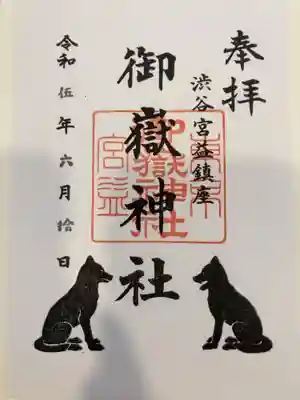 奉拝
渋谷宮益鎮座
御嶽神社
令和伍年六月拾日
東京
御嶽神社
宮益